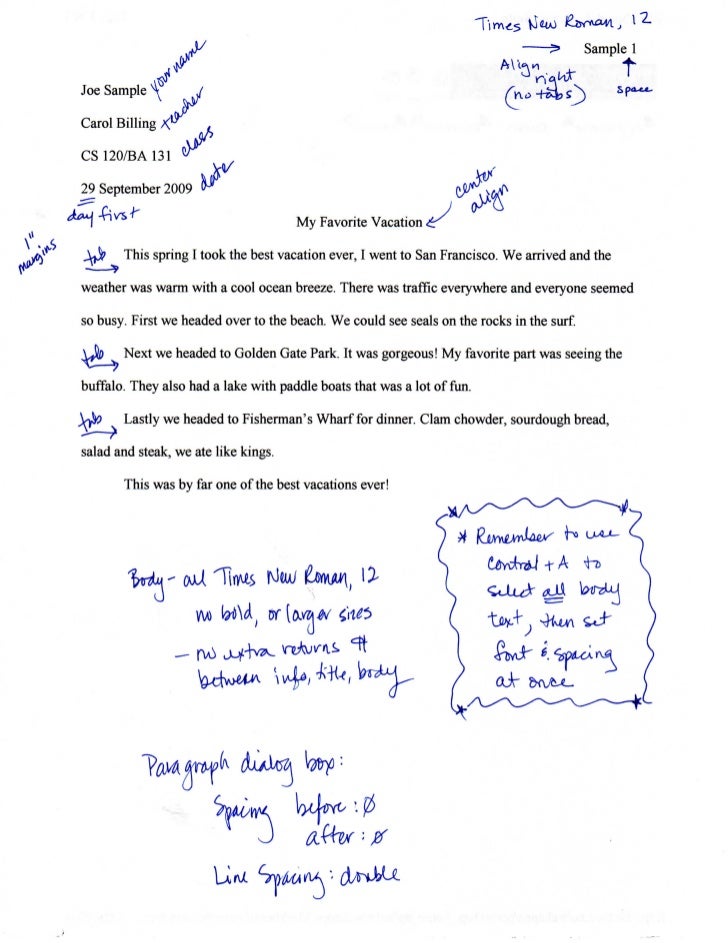 Times New Roman, 12
→ Sample 1
Align right (no tabs)
↑ space
Joe Sample your name
Carol Billing teacher
CS 120/BA 131 class
29 September 2009 date
day first
1" margins
My Favorite Vacation
center align
tab This spring I took the best vacation ever, I went to San Francisco. We arrived and the
weather was warm with a cool ocean breeze. There was traffic everywhere and everyone seemed
so busy. First we headed over to the beach. We could see seals on the rocks in the surf.
tab Next we headed to Golden Gate Park. It was gorgeous! My favorite part was seeing the
buffalo. They also had a lake with paddle boats that was a lot of fun.
tab Lastly we headed to Fisherman's Wharf for dinner. Clam chowder, sourdough bread,
salad and steak, we ate like kings.
This was by far one of the best vacations ever!
* Remember to use
control + A to
select all body
text, then set
font & spacing
at once
Body - all Times New Roman, 12
no bold, or larger sizes
- no extra returns ¶
between info, title, body
Paragraph dialog box:
Spacing before: Ø
after: Ø
Line Spacing: double